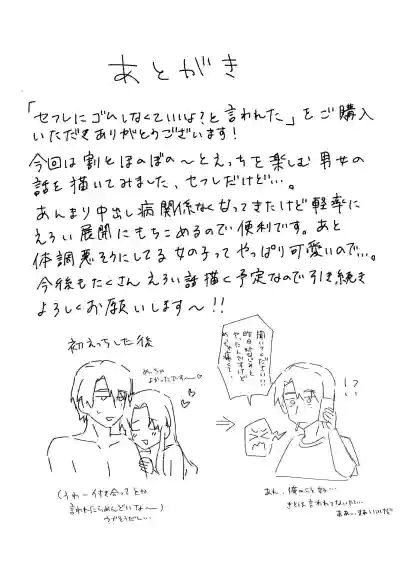 あとがき
「セフレにゴムしなくていいよ？と言われた」をご購入
いただきありがとうございます！
今回は割とほのぼの〜とえっちを楽しむ男女の
話を描いてみました、セフレだけど…。
あんまり中出し病関係なくなってきたけど軽率に
えろい展開にもちこめるので便利です。あと
体調悪そうにしてる女の子ってやっぱり可愛いので…。
今後もたくさんえろい話描く予定なので引き続き
よろしくお願いします〜!!
初えっちした後
めっちゃ
よかったです〜♡
聞いてください!!
昨日
!?
(うわー付き合ってとか
言われたらめんどいな〜)
あん、俺のこと好き…
とは言われてない…